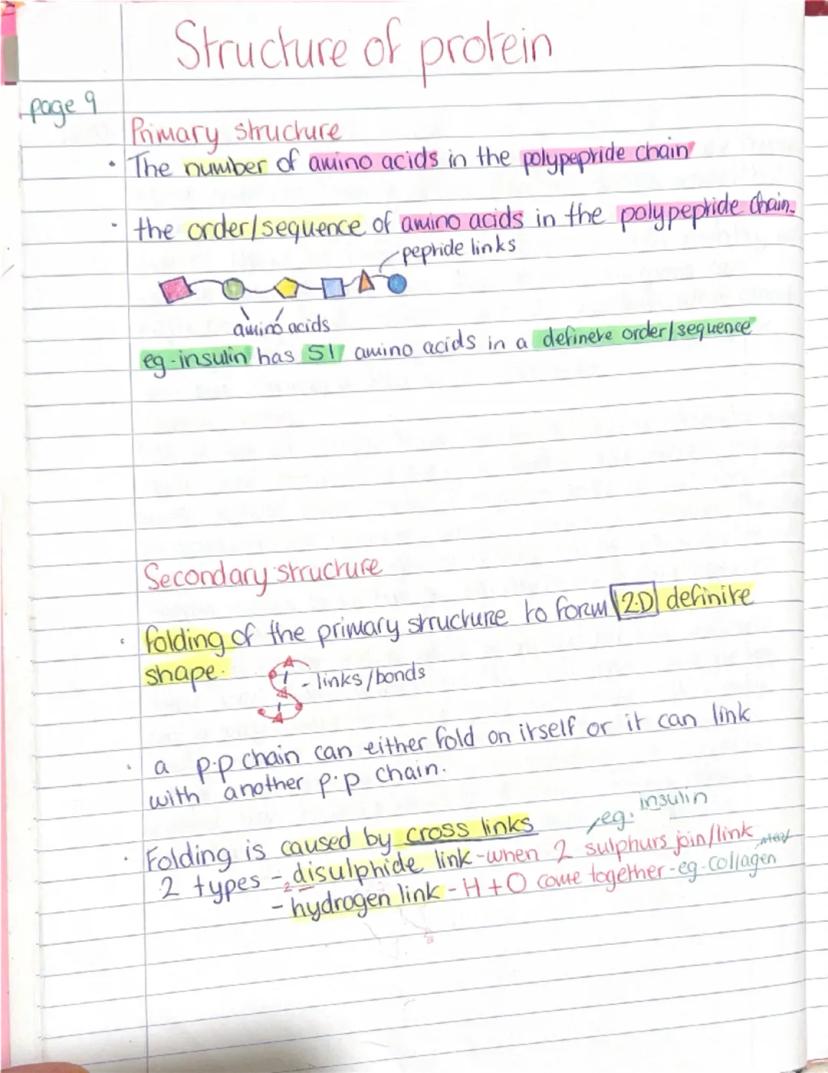 Structure of protein
page 9
Primary structure
• The number of amino acids in the polypeptide chain
• the order/sequence of amino acids in the polypeptide chain.
peptide links
amino acids
eg-insulin has 51 amino acids in a definete order/sequence
Secondary structure
• folding of the primary structure to form 2D definite
shape.
- links/bonds
• a p.p chain can either fold on itself or it can link
with another p.p chain.
eg. insulin
• Folding is caused by cross links
2 types - disulphide link - when 2 sulphurs join/link
- hydrogen link - H + O come together - eg-collagen